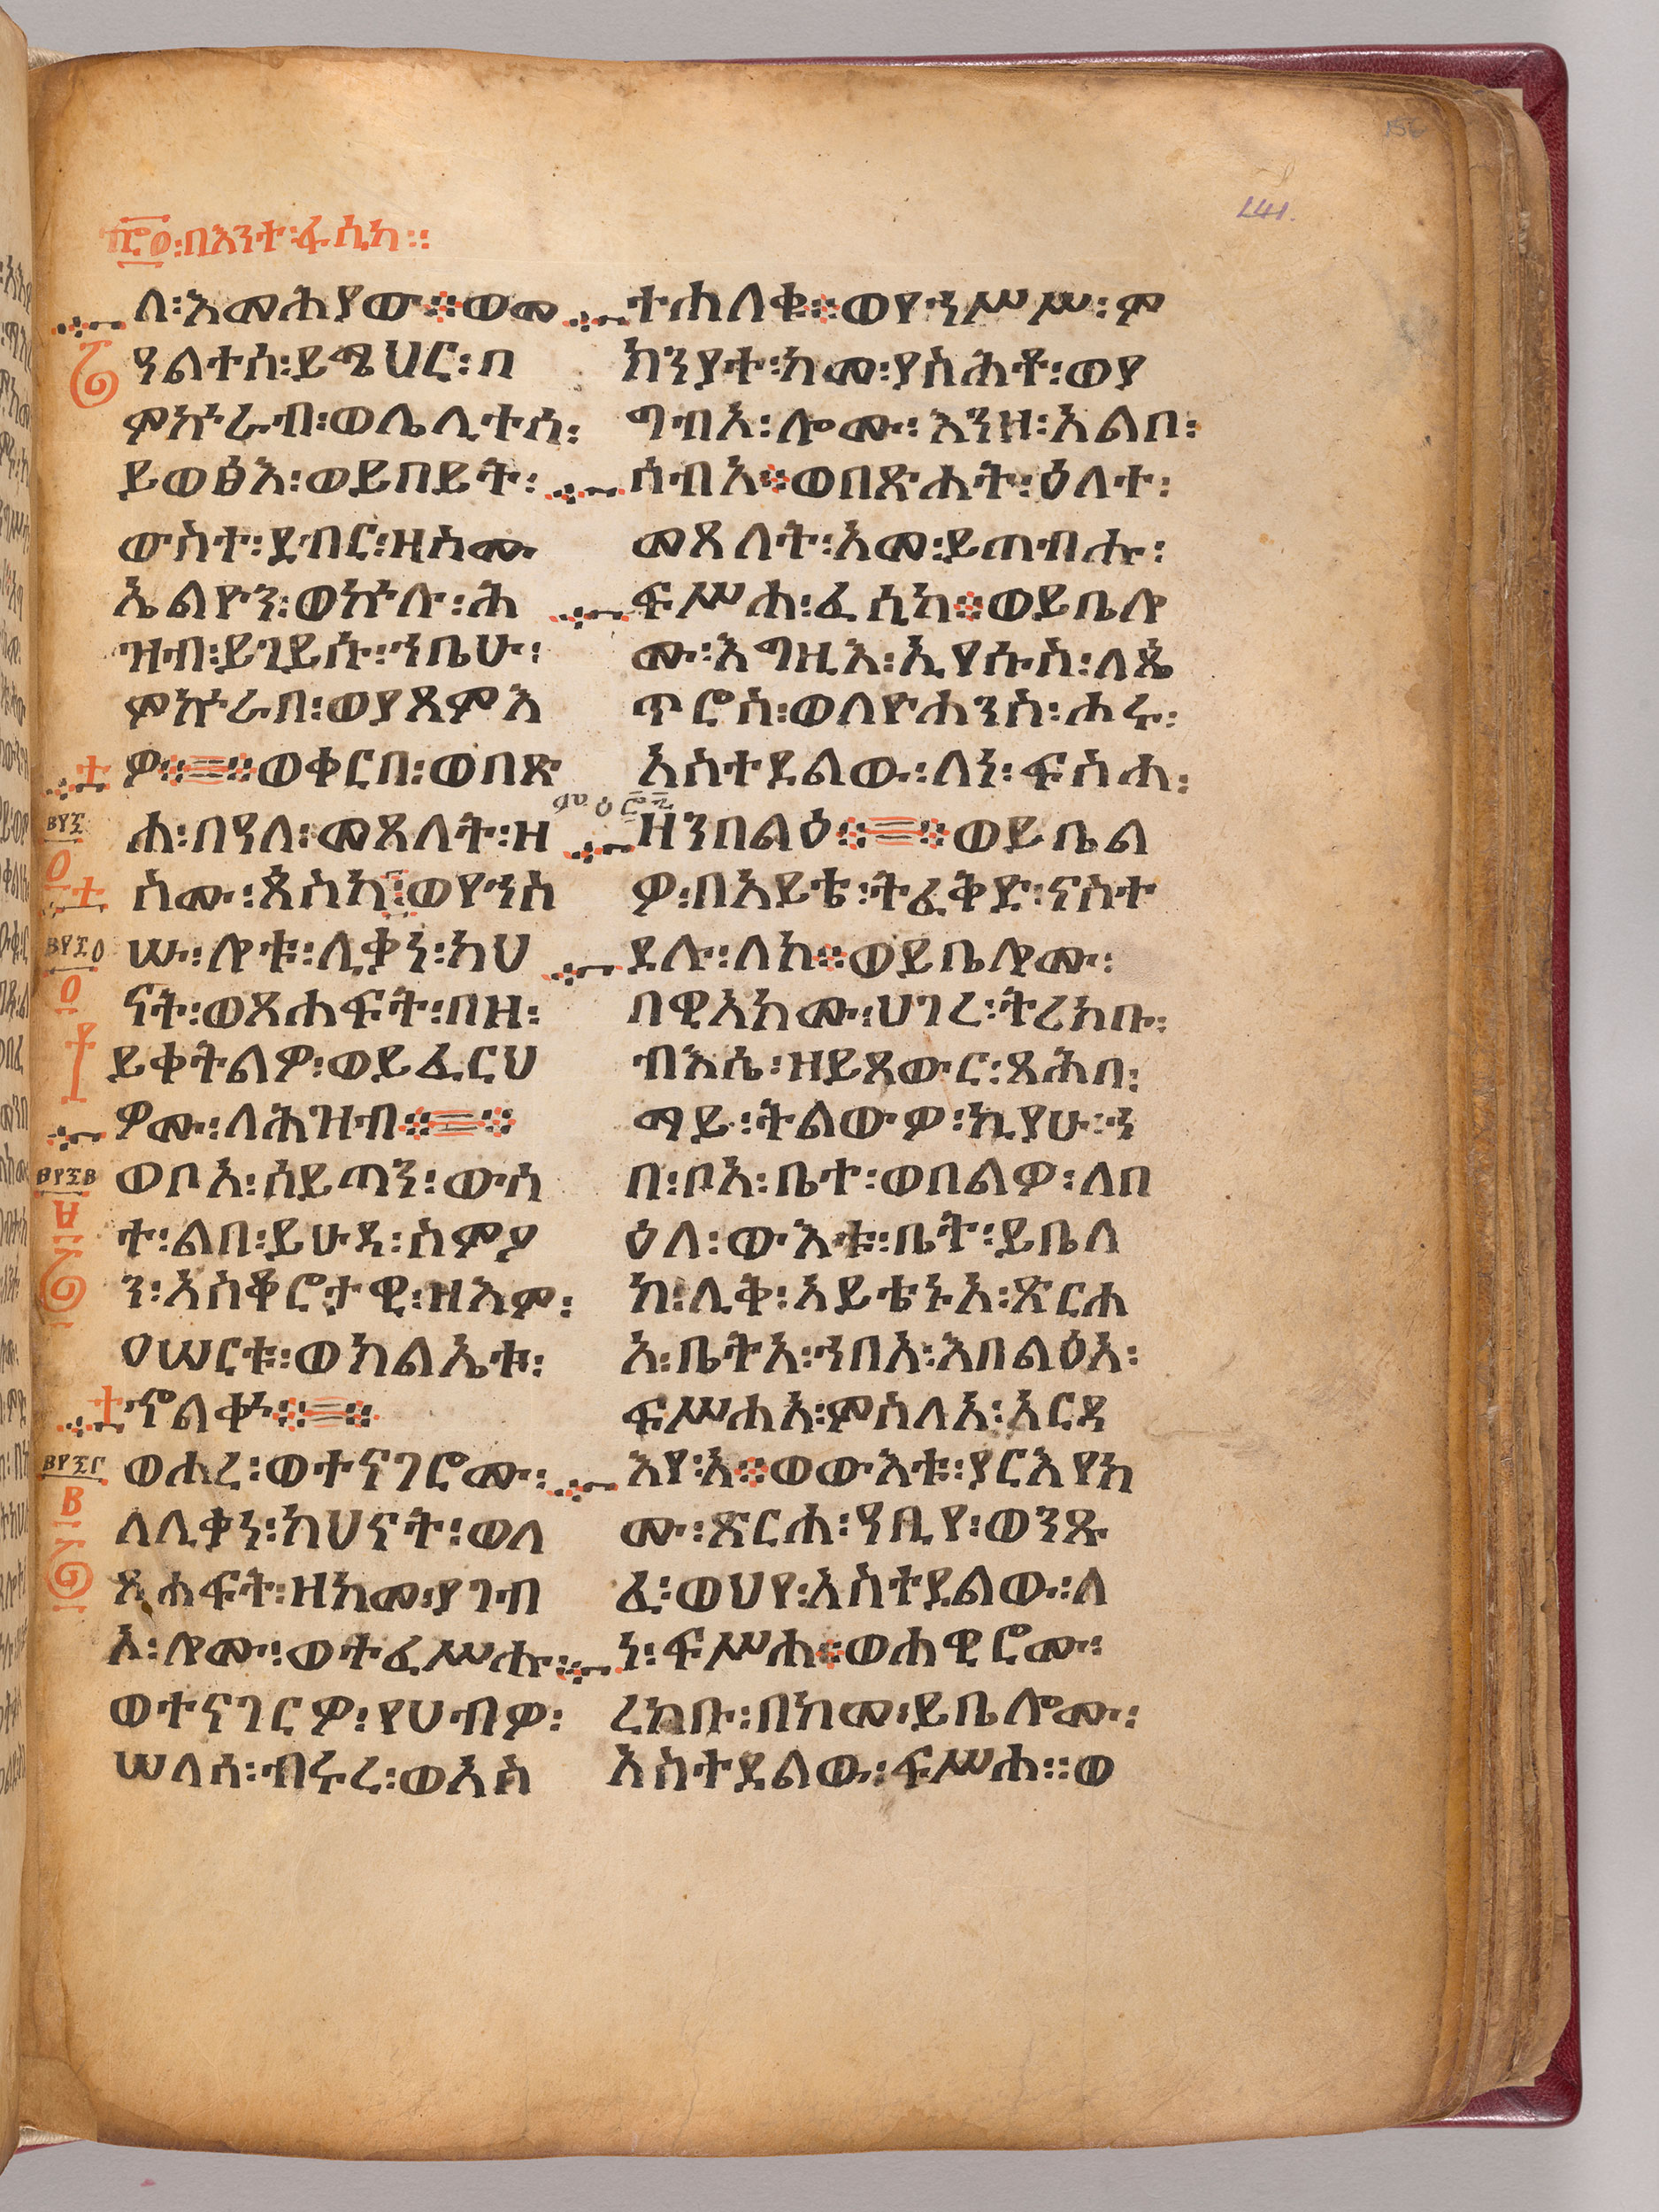 ፸፩፡በእንተ፡ፋሲካ።
ለ፡እመሕያው።ወመ
ዓልተሰ፡ይሜህር፡በ
ምኵራብ፡ወሌሊተሰ፡
ይወፅእ፡ወይበይት፡
ውስተ፡ደብር፡ዘስሙ
ኤልዮን፡ወኵሉ፡ሕ
ዝብ፡ይገይሱ፡ኀቤሁ፡
ምኵራበ፡ወያጸምእ
ዎ።ወቀርበ፡ወበጽ
ሐ፡በዓለ፡መጸለት፡ዘ
ስሙ፡ጳስካ፡ወየኀሥ
ሡ፡ሎቱ፡ሊቃነ፡ካህ
ናት፡ወጸሐፍት፡በዘ፡
ይቀትልዎ፡ወይፈርህ
ዎሙ፡ለሕዝብ።
ወቦአ፡ሰይጣን፡ውስ
ተ፡ልበ፡ይሁዳ፡ስምዖ
ን፡አስቆሮታዊ፡ዘእም፡
ዐሠርቱ፡ወክልኤቱ፡
ኆልቍ።
ወሐረ፡ወተናገሮሙ፡
ለሊቃነ፡ካህናት፡ወለ
ጸሐፍት፡ዘከመ፡ያገብ
እ፡ሎሙ፡ወተፈሥሑ፡
ወተናገርዎ፡የሀብዎ፡
ሠላሰ፡ብሩረ፡ወአስ
ተሐለቁ።ወየኀሥሥ፡ም
ክንያተ፡ከመ፡ያስሕቶ፡ወያ
ግብእ፡ሎሙ፡እንዘ፡አልቦ፡
ሰብአ።ወበጽሐት፡ዕለተ፡
መጸለት፡አመ፡ይጠብሑ፡
ፍሥሐ፡ፈሲካ።ወይቤሎ
ሙ፡እግዚእ፡ኢየሱስ፡ለጴ
ጥሮስ፡ወለዮሐንስ፡ሐሩ፡
አስተደልው፡ለነ፡ፍስሐ፡
ዘንበልዕ።ወይቤል
ዎ፡በአይቴ፡ትፈቅድ፡ናስተ
ደሉ፡ለከ።ወይቤሎሙ፡
በዊአክሙ፡ሀገረ፡ትረክቡ፡
ብእሴ፡ዘይጸውር፡ጸሕበ፡
ማይ፡ትልውዎ፡ኪያሁ፡ኀ
በ፡ቦአ፡ቤተ፡ወበልዎ፡ለበ
ዕለ፡ውእቱ፡ቤት፡ይቤለ
ከ፡ሊቅ፡አይቴኑአ፡ጽርሐ
አ፡ቤትአ፡ኀበአ፡እበልዕአ፡
ፍሥሐአ፡ምስለአ፡አርዳ
እየ፡አ።ወውእቱ፡ያርእየክ
ሙ፡ጽርሐ፡ዓቢየ፡ወንጹ
ፈ፡ወህየ፡አስተደልው፡ለ
ነ፡ፍሥሐ።ወሐዊሮሙ፡
ረከቡ፡በከመ፡ይቤሎሙ፡
አስተደልው፡ፍሥሐ።ወ